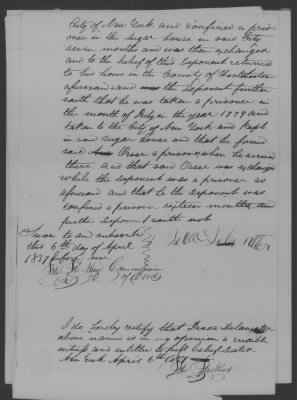 City of New York and confined a pris-
oner in the sugar house in said City
seven months and was then exchanged
and to the belief of this Deponent returned
to his home in the County of Westchester
aforesaid and the Deponent further
saith that he was taken a prisoner in
the month of July in the year 1779 and
taken to the City of New York and kept
in said sugar house and that he found
said a prisoner when he arrived
there. and that said was exchanged
while the Deponent was a prisoner as
aforesaid and that he the Deponent was
confined a prisoner sixteen months and
further Deponent saith not
Sworn to and subscribed
this 6th day of April
before me
Commissioner
of Deeds
I do hereby certify that Isaac
above named is in my opinion a credible
witness and entitled to full belief
New York April 6th